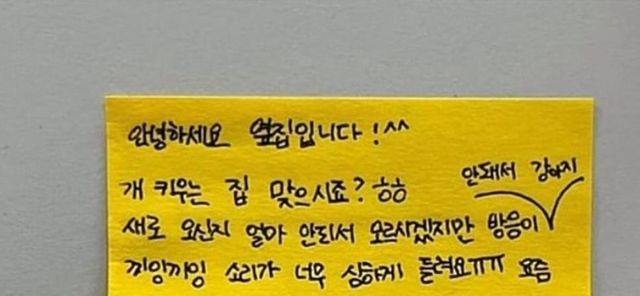 안녕하세요 옆집입니다!^^
개 키우는 집 맞으시죠? ㅎㅎ
안돼서 강아지
새로 오신지 얼마 안되서 모르시겠지만 방음이
끼잉끼잉 소리가 너무 심하게 들려요ㅠㅠ 요즘